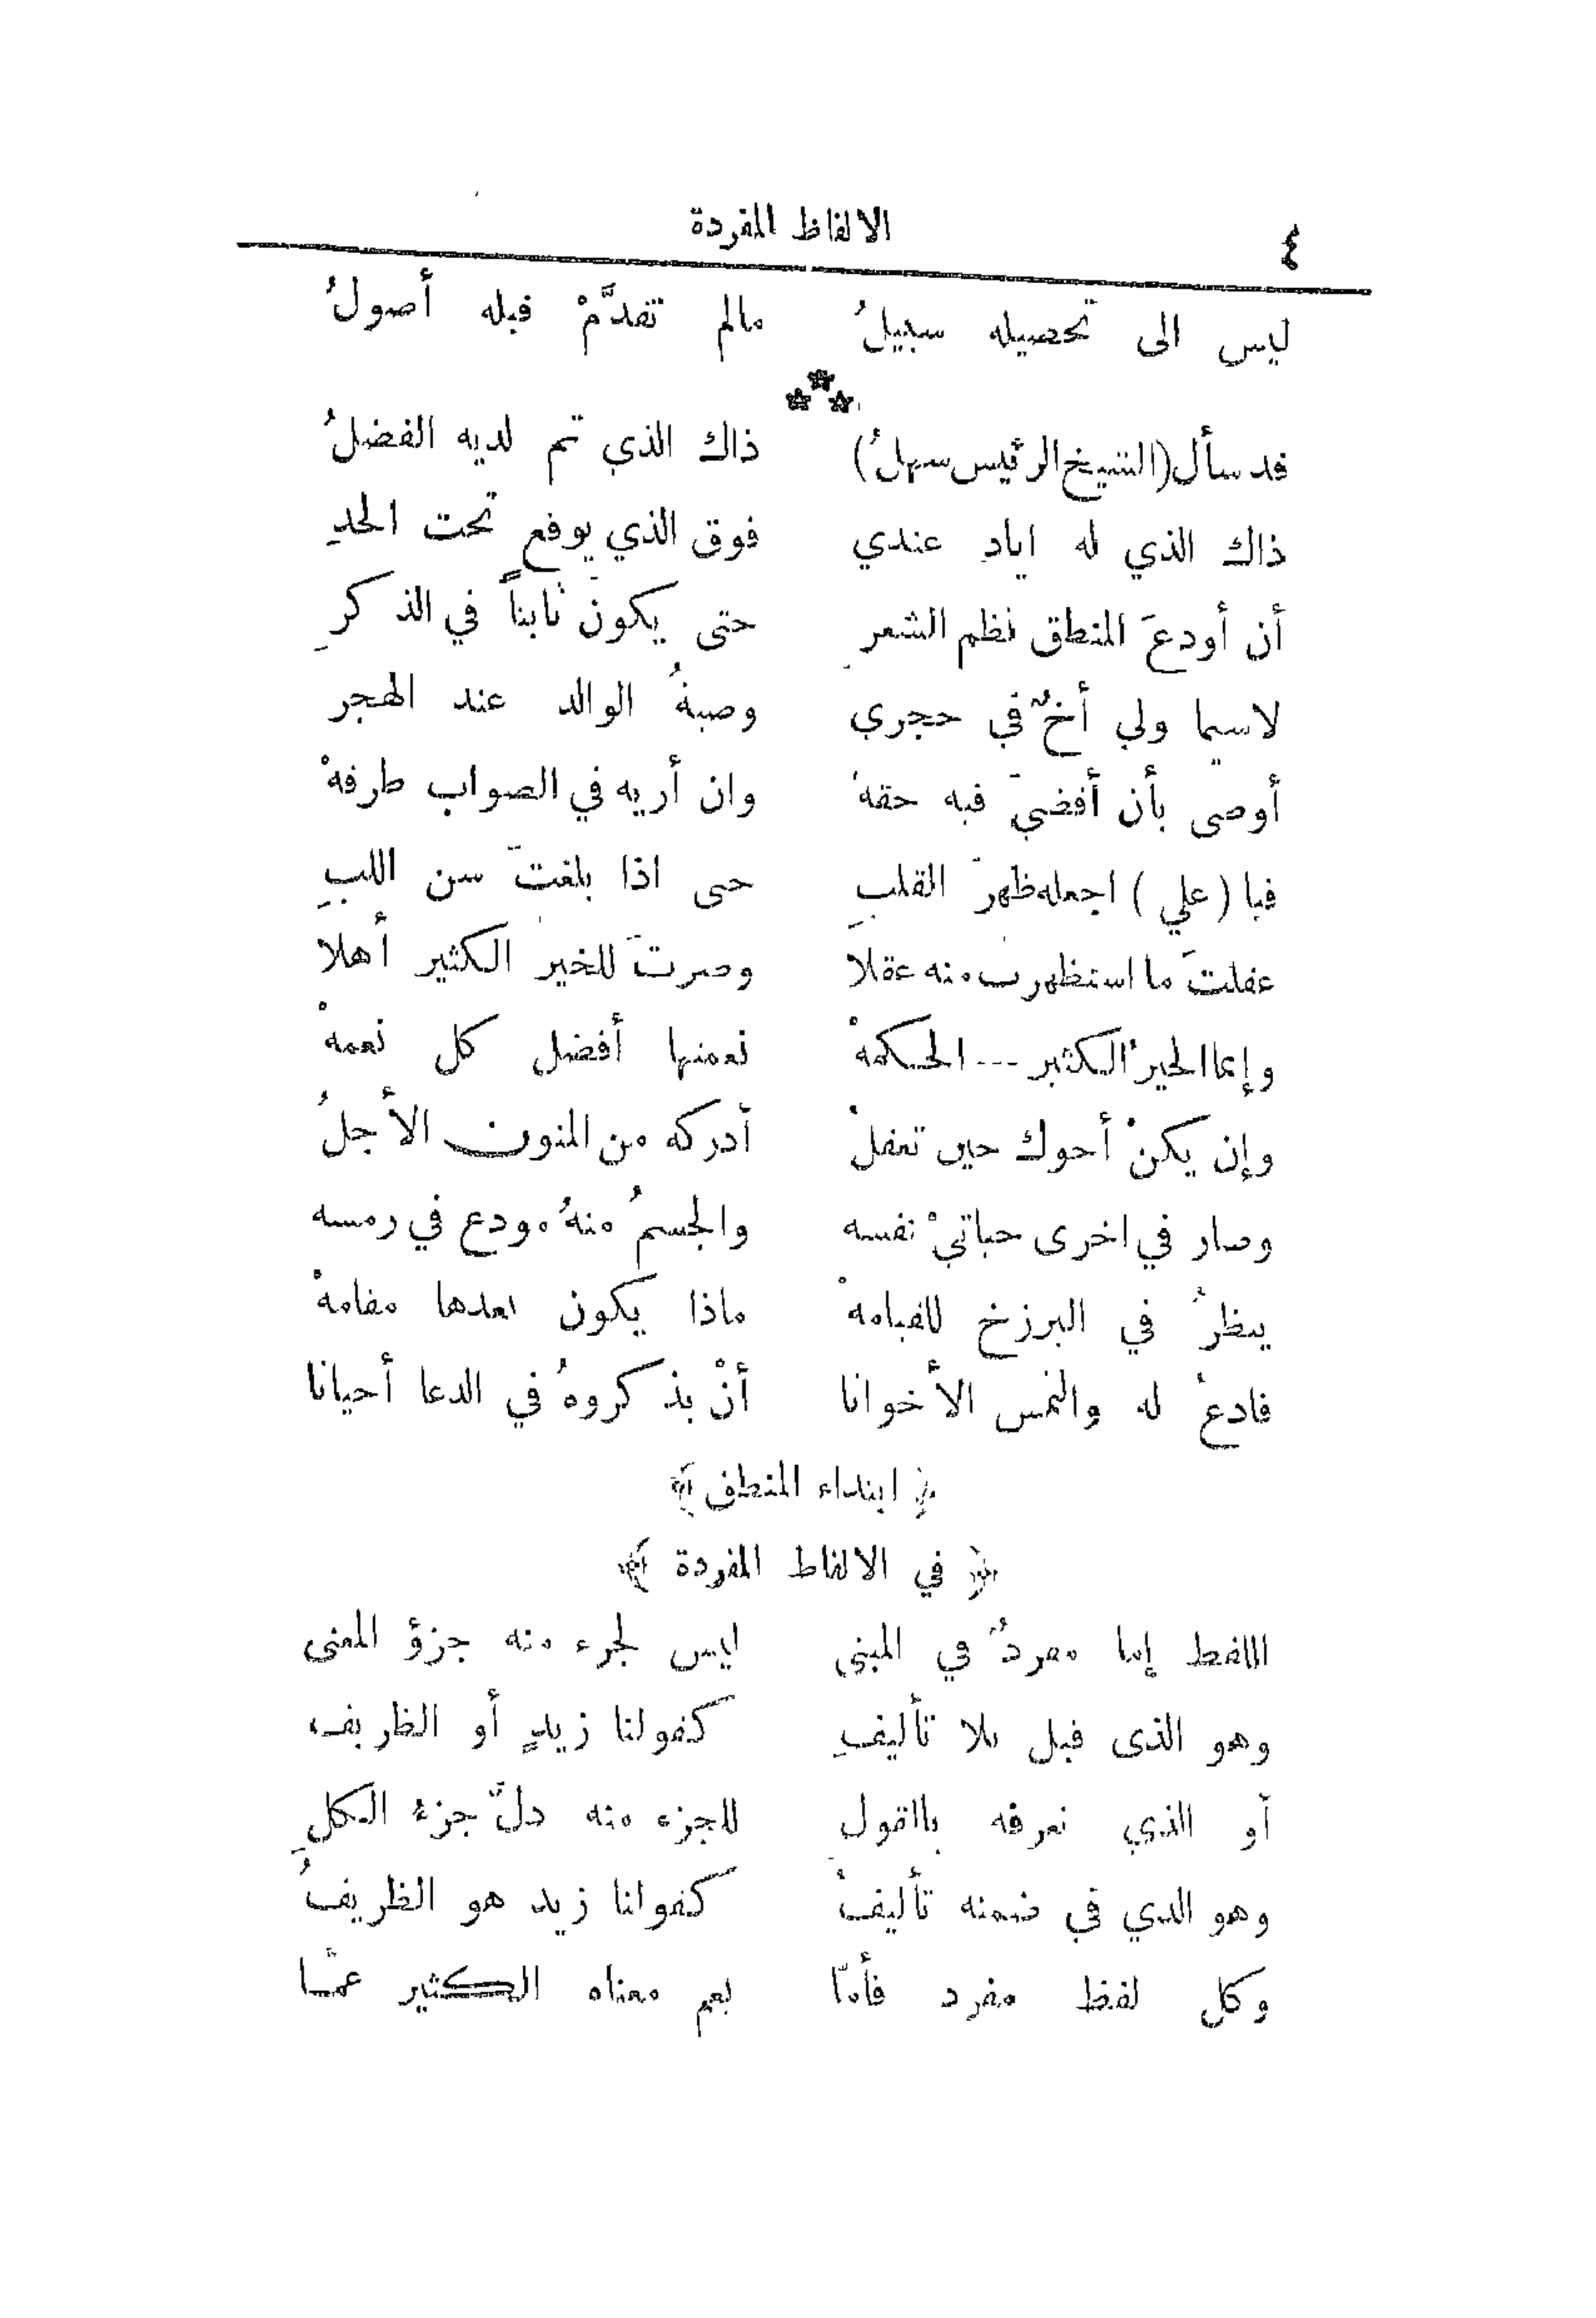 ٤
الالفاظ المفردة
ليس الى تحصيله سبيلُ مالم تقدَّمْ قبله أصولُ
قد سأل (الشيخ الرئيس سهلُ) ذاك الذي تم لديه الفضلُ
ذاك الذي له ايادٍ عندي فوق الذي يوقع تحت الحدِ
أن أودعَ المنطق نظم الشعرِ حتى يكونَ ثابتاً في الذكرِ
لاسيما ولي أخٌ في حجري وصيةُ الوالد عند الهجر
أوصى بأن أقضيَ فيه حقهْ وان أريه في الصواب طرقهْ
فيا (علي) اجعله ظهرَ القلبِ حتى اذا بلغتَ سن اللبِ
عقلتَ ما استظهرت منه عقلا وصرتَ للخير الكثير أهلا
وإنما الخيرُ الكثير --- الحكمهْ نعمتها أفضل كل نعمهْ
وإن يكنْ أخوك حين تعقلْ أدركه من المنون الأجلُ
وصار في اخرى حياتيْ نفسه والجسمُ منهُ مودع في رمسه
ينظرُ في البرزخ للقيامهْ ماذا يكون بعدها مقامهْ
فادعُ له والتمس الأخوانا أنْ يذكروهُ في الدعا أحيانا
﴿ ابتداء المنطق ﴾
﴿ في الالفاظ المفردة ﴾
اللفظ إما مفردٌ في المبنى ليس لجزء منه جزؤ المعنى
وهو الذى قيل بلا تأليفِ كقولنا زيدٍ أو الظريف
أو الذي نعرفه بالقولِ للجزء منه دلَّ جزءُ الكلِ
وهو الذي في ضمنه تأليفُ كقولنا زيد هو الظريفُ
وكل لفظ مفرد فأمّا يعم معناه الكثير عمّا